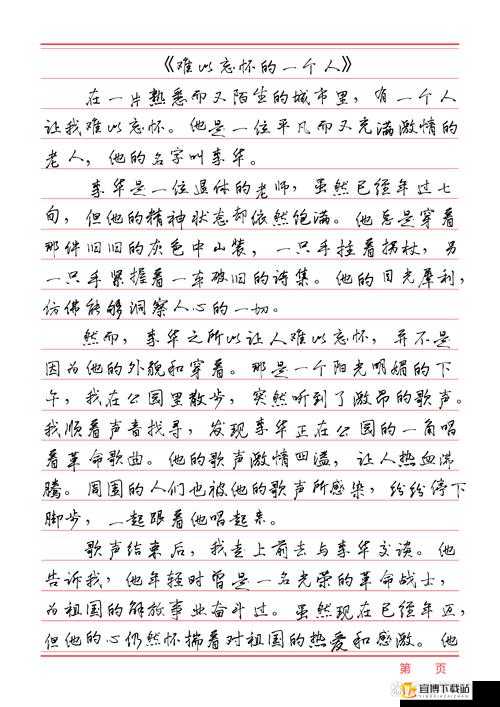 《难以忘怀的一个人》
在一片熟悉而又陌生的城市里，有一个人
让我难以忘怀。他是一位平凡而又充满激情的
老人，他的名字叫李华。
李华是一位退休的老师，虽然已经年过七
旬，但他的精神状态却依然饱满。他总是穿着
那件旧旧的灰色中山装，一只手拄着拐杖，另
一只手紧握着一本破旧的诗集。他的目光犀利，
仿佛能够洞察人心的一切。
然而，李华之所以让人难以忘怀，并不是
因为他的外貌和穿着。那是一个阳光明媚的下
午，我在公园里散步，突然听到了激昂的歌声。
我顺着声音找寻，发现李华正在公园的一角唱
着革命歌曲。他的歌声激情四溢，让人热血沸
腾。周围的人们也被他的歌声所感染，纷纷停下
脚步，一起跟着他唱起来。
歌声结束后，我走上前去与李华交谈。他
告诉我，他年轻时曾是一名光荣的革命战士，
为祖国的解放事业奋斗过。虽然现在已经年迈，
但他的心仍然怀揣着对祖国的热爱和感激。他
第 页
宜博下载站